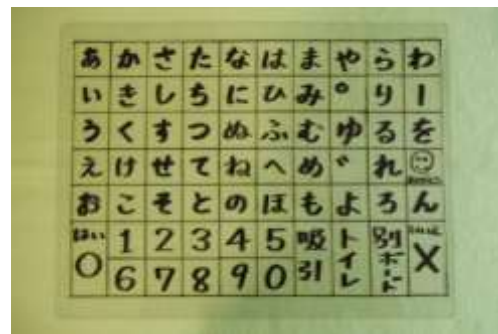 あ か さ た な は ま や ら わ
い き し ち に ひ み ゜ り ー
う く す つ ぬ ふ む ゆ る を
え け せ て ね へ め ゛ れ
お こ そ と の ほ も よ ろ ん
はい ○ 1 2 3 4 5 吸引 トイレ 別ボード いいえ ×
6 7 8 9 0